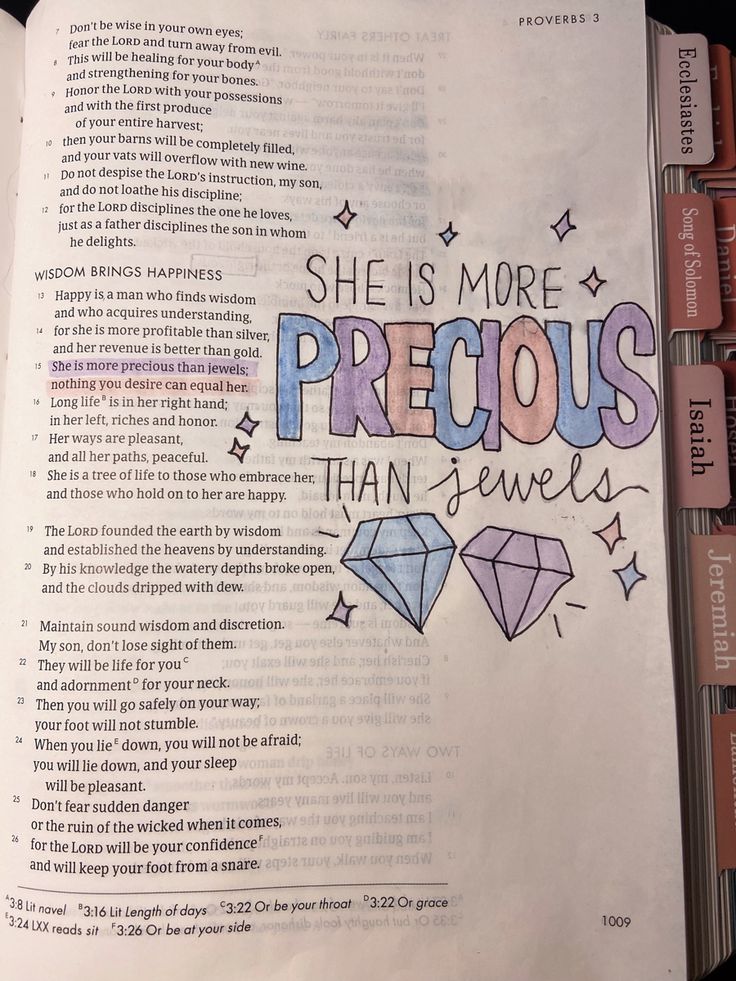 PROVERBS 3
7 Don't be wise in your own eyes;
fear the LORD and turn away from evil.
8 This will be healing for your bodyᴬ
and strengthening for your bones.
9 Honor the LORD with your possessions
and with the first produce
of your entire harvest;
10 then your barns will be completely filled,
and your vats will overflow with new wine.
11 Do not despise the LORD's instruction, my son,
and do not loathe his discipline;
12 for the LORD disciplines the one he loves,
just as a father disciplines the son in whom
he delights.
WISDOM BRINGS HAPPINESS
13 Happy is a man who finds wisdom
and who acquires understanding,
14 for she is more profitable than silver,
and her revenue is better than gold.
15 She is more precious than jewels;
nothing you desire can equal her.
16 Long lifeᴮ is in her right hand;
in her left, riches and honor.
17 Her ways are pleasant,
and all her paths, peaceful.
18 She is a tree of life to those who embrace her,
and those who hold on to her are happy.
19 The LORD founded the earth by wisdom
and established the heavens by understanding.
20 By his knowledge the watery depths broke open,
and the clouds dripped with dew.
21 Maintain sound wisdom and discretion.
My son, don't lose sight of them.
22 They will be life for youᶜ
and adornmentᴰ for your neck.
23 Then you will go safely on your way;
your foot will not stumble.
24 When you lieᴱ down, you will not be afraid;
you will lie down, and your sleep
will be pleasant.
25 Don't fear sudden danger
or the ruin of the wicked when it comes,
26 for the LORD will be your confidenceᶠ
and will keep your foot from a snare.
ᴬ3:8 Lit navel ᴮ3:16 Lit Length of days ᶜ3:22 Or be your throat ᴰ3:22 Or grace
ᴱ3:24 LXX reads sit ᶠ3:26 Or be at your side
1009
SHE IS MORE
PRECIOUS
THAN jewels
Ecclesiastes
Song of Solomon
Isaiah
Jeremiah
Daniel